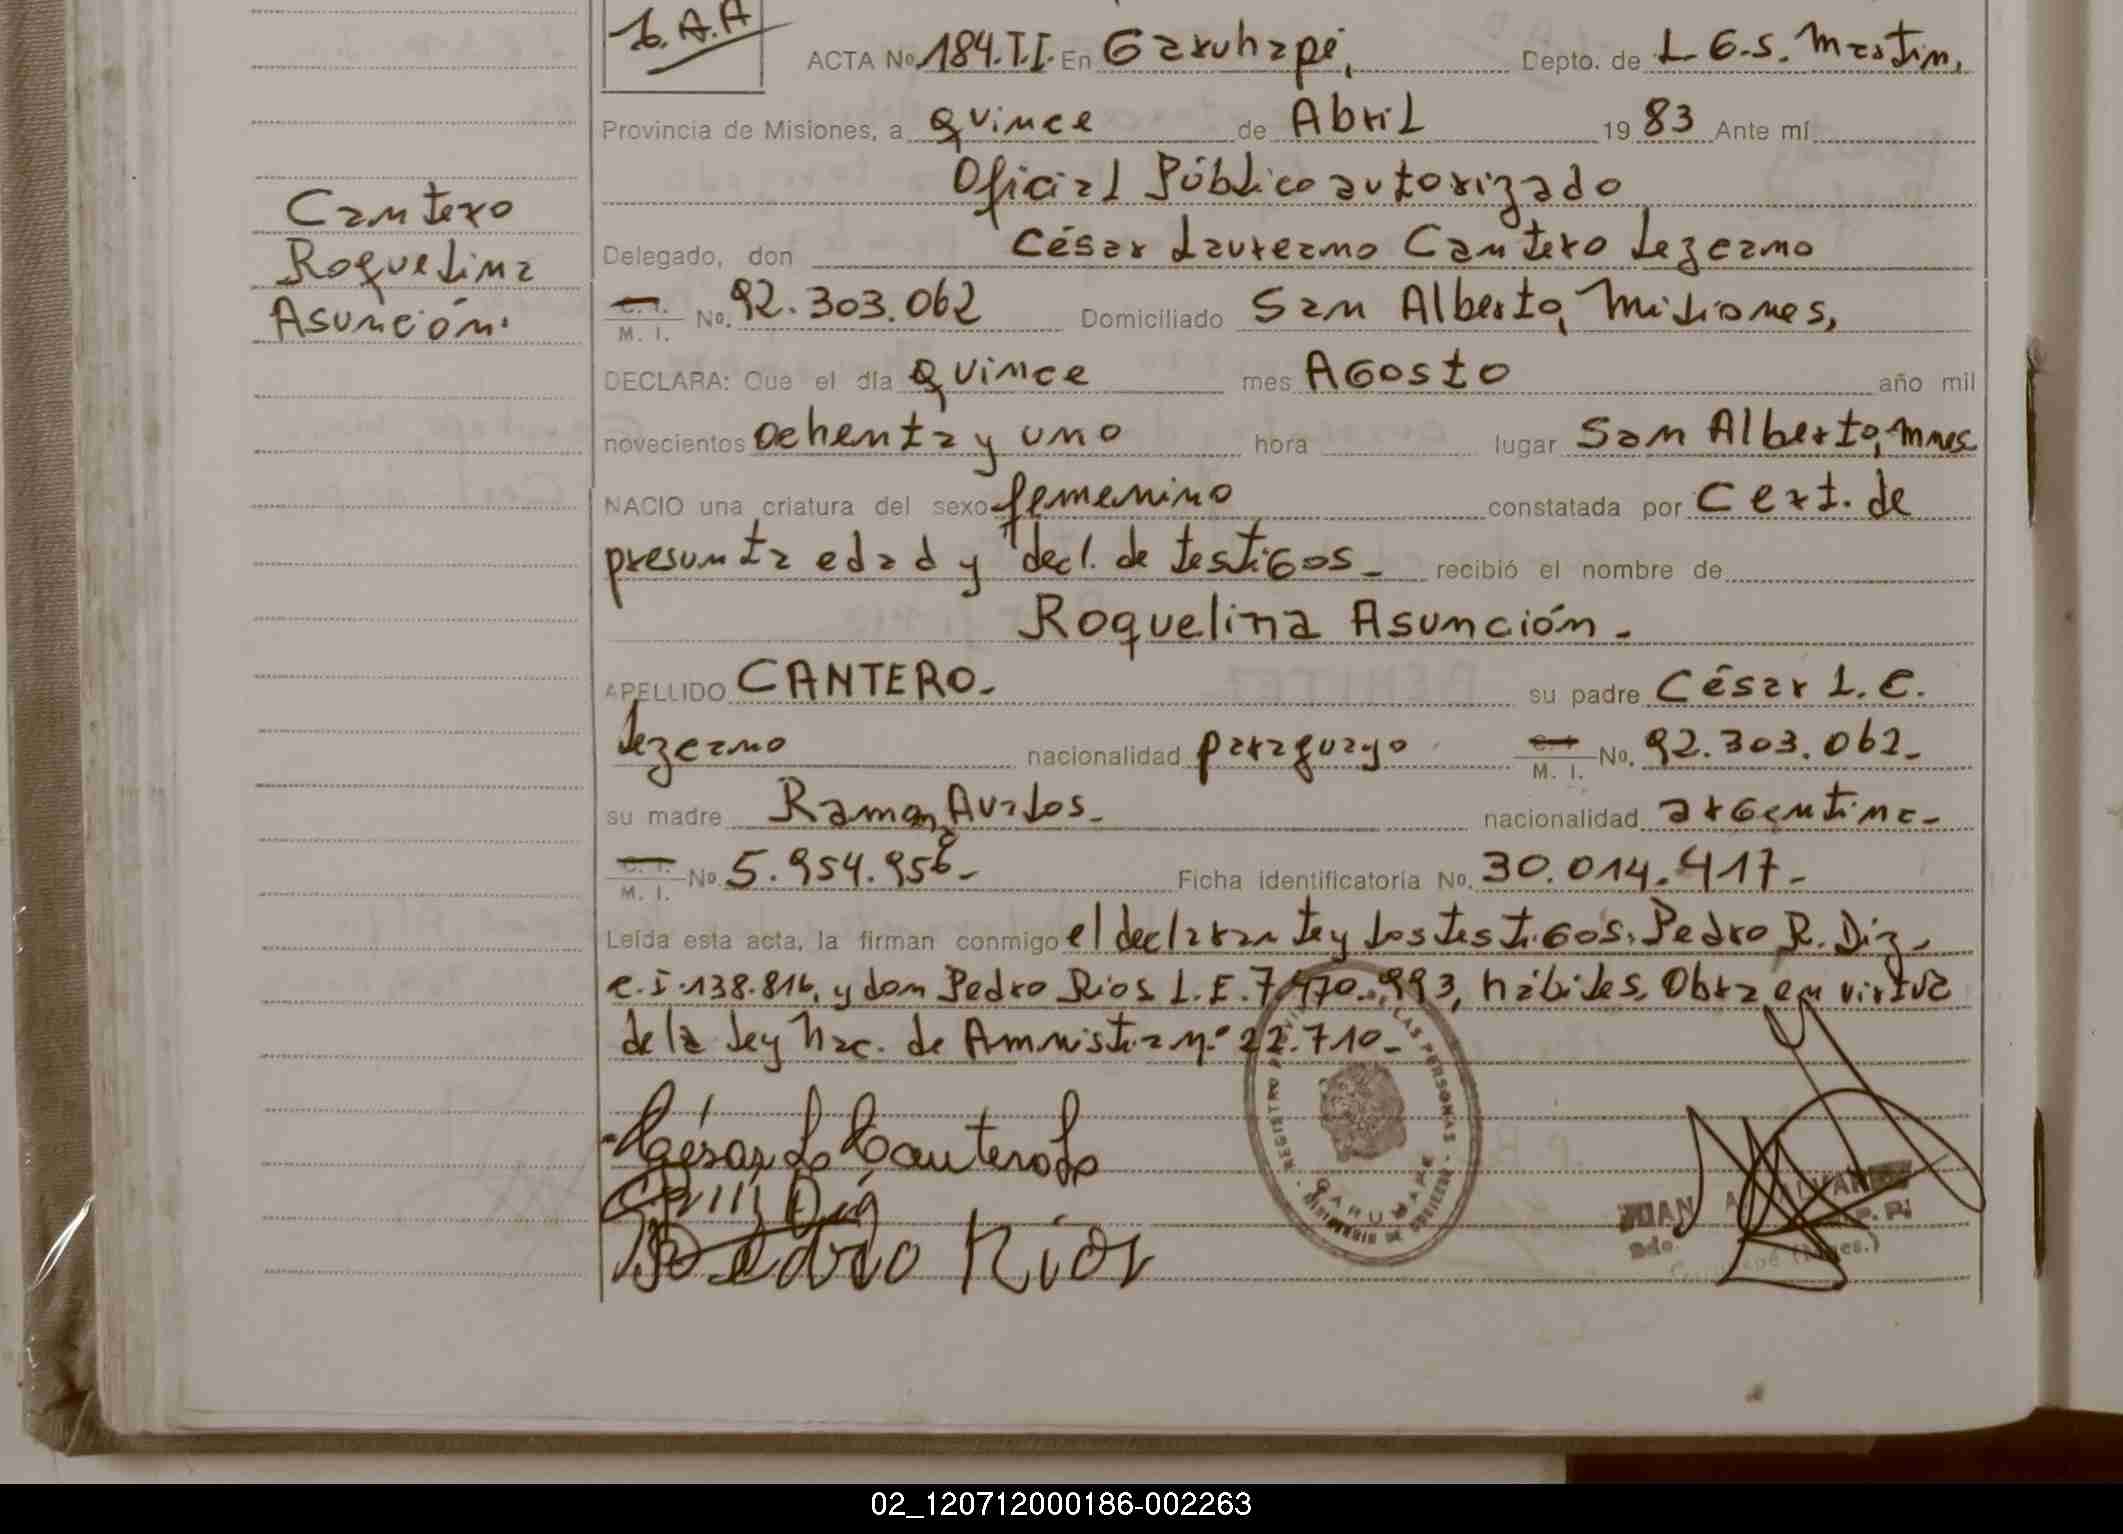 ACTA Nº 184.T.I. En Garuhapé, Depto. de L G.S. Martín,
Provincia de Misiones, a quince de Abril 19 83 Ante mí
Oficial Público autorizado
Delegado, don César Laureano Cantero Lezcano
C. I. M. I. No. 92.303.062 Domiciliado San Alberto, Misiones,
DECLARA: Que el día quince mes AGosto año mil
novecientos ochenta y uno hora lugar San Alberto, Mnes
NACIO una criatura del sexo femenino constatada por Cert. de
presunta edad y decl. de testigos_ recibió el nombre de
Roquelina Asunción.-
APELLIDO CANTERO- su padre César L. C.
Lezcano nacionalidad paraguayo M. I. No. 92.303.062-
su madre Ramona Avalos- nacionalidad argentina-
C. I. M. I. No. 5.954.956- Ficha identificatoria No. 30.014.417-
Leída esta acta, la firman conmigo el declarante y los testigos, Pedro R. Diz-
c.I. 138.816, y don Pedro Rios L.E. 7.470.993, hábiles, Obra en virtud
de la Ley Nac. de Amnistia n.º 22.710-
Cantero
Roquelina
Asunción.
César L. Cantero L
Pedro Rios
REGISTRO PROVINCIAL DE LAS PERSONAS - MINISTERIO DE GOBIERNO -
GARUHAPE
JUAN A.
02_120712000186-002263